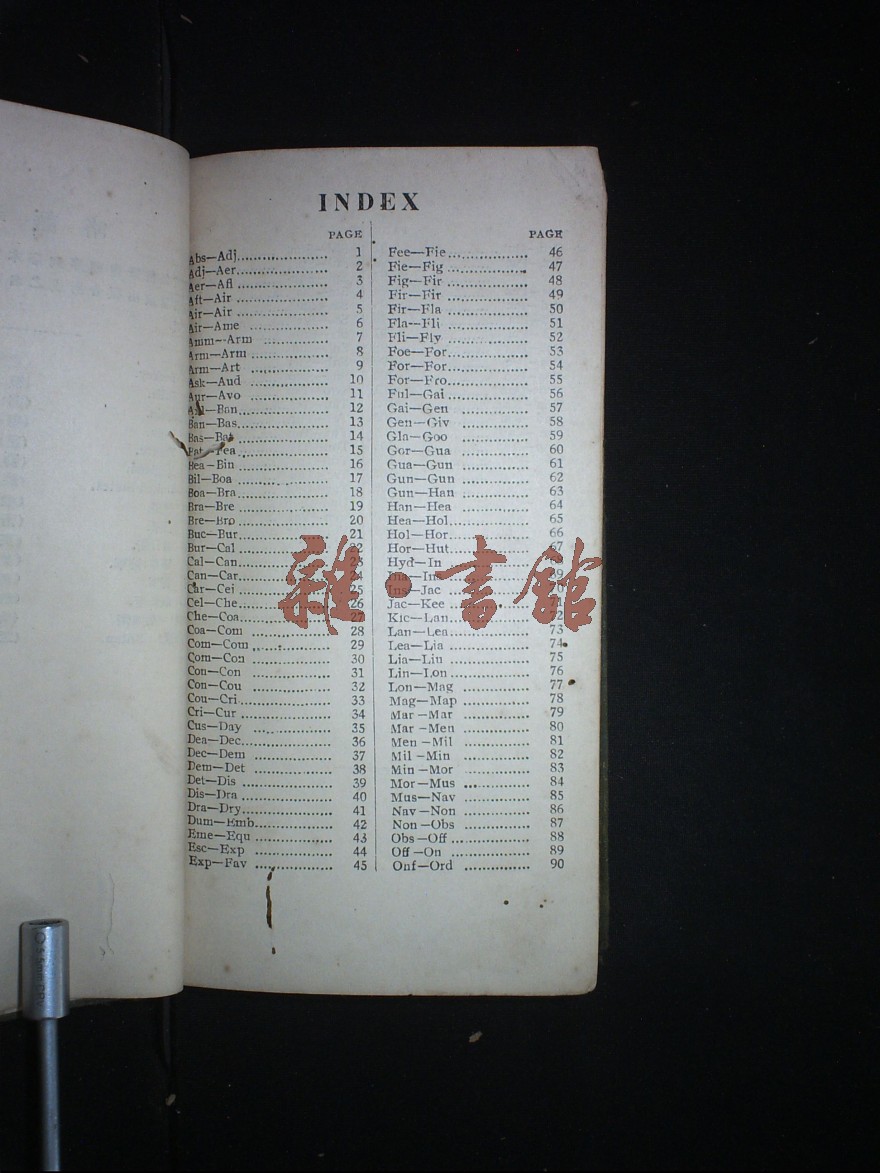 INDEX
PAGE
Abs—Adj.................... 1
Adj—Aer.................... 2
Aer—Afl .................... 3
Aft—Air .................... 4
Air—Air .................... 5
Air—Ame .................... 6
Amm—Arm .................... 7
Arm—Arm .................... 8
Arm—Art .................... 9
Ask—Aud .................... 10
Aur—Avo .................... 11
Ban.................... 12
Ban—Bas.................... 13
Bas—Bat .................... 14
Bat—Bea .................... 15
Bea—Bin .................... 16
Bil—Boa .................... 17
Boa—Bra.................... 18
Bra—Bre .................... 19
Bre—Bro .................... 20
Buc—Bur.................... 21
Bur—Cal .................... 22
Cal—Can.................... 23
Can—Car.................... 24
Car—Cei .................... 25
Cel—Che.................... 26
Che—Coa.................... 27
Coa—Com .................... 28
Com—Com .................... 29
Com—Con .................... 30
Con—Con .................... 31
Con—Cou .................... 32
Cou—Cri.................... 33
Cri—Cur .................... 34
Cus—Day .................... 35
Dea—Dec.................... 36
Dec—Dem .................... 37
Dem—Det .................... 38
Det—Dis .................... 39
Dis—Dra .................... 40
Dra—Dry.................... 41
Dum—Emb.................... 42
Eme—Equ .................... 43
Esc—Exp .................... 44
Exp—Fav .................... 45
PAGE
Fee—Fie.................... 46
Fie—Fig .................... 47
Fig—Fir .................... 48
Fir—Fir .................... 49
Fir—Fla .................... 50
Fla—Fli .................... 51
Fli—Fly .................... 52
Foe—For.................... 53
For—For.................... 54
For—Fro.................... 55
Ful—Gai.................... 56
Gai—Gen .................... 57
Gen—Giv .................... 58
Gla—Goo .................... 59
Gor—Gua .................... 60
Gua—Gun .................... 61
Gun—Gun .................... 62
Gun—Han .................... 63
Han—Hea .................... 64
Hea—Hol.................... 65
Hol—Hor.................... 66
Hor—Hut.................... 67
Hyd—In
Ins—Jac
Jac—Kee .................... 71
Kic—Lan.................... 72
Lan—Lea.................... 73
Lea—Lia .................... 74
Lia—Lin .................... 75
Lin—Lon.................... 76
Lon—Mag .................... 77
Mag—Map .................... 78
Mar—Mar .................... 79
Mar—Men .................... 80
Men—Mil .................... 81
Mil—Min .................... 82
Min—Mor .................... 83
Mor—Mus .................... 84
Mus—Nav .................... 85
Nav—Non .................... 86
Non—Obs .................... 87
Obs—Off.................... 88
Off—On .................... 89
Onf—Ord .................... 90
雜·書館